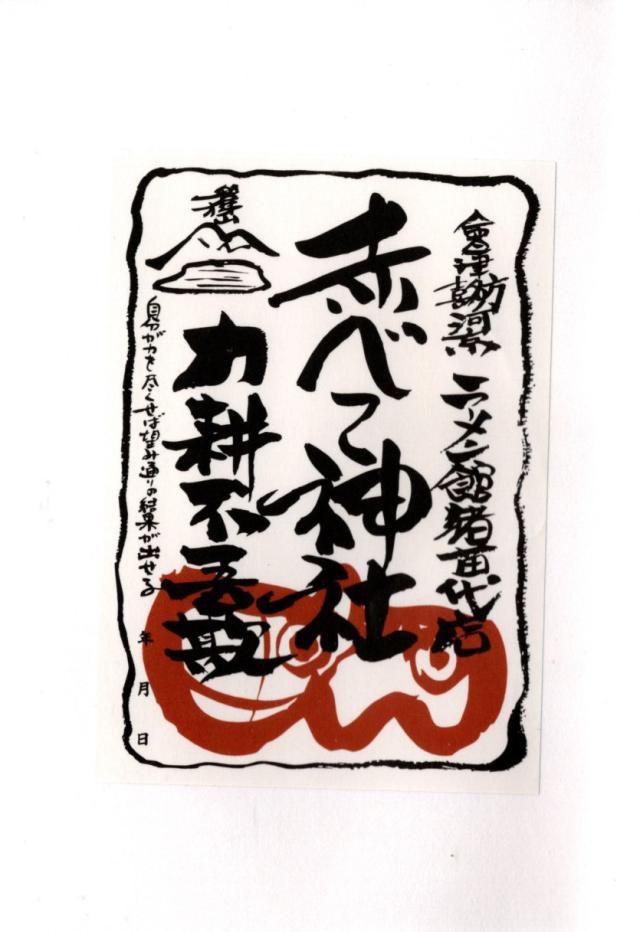 會津喜多方 河京 ラーメン館猪苗代店
赤べこ神社
力耕不吾欺
自分が力を尽くせば望み通りの結果が出せる
年 月 日